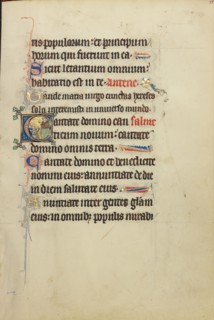 ris populorum: et principum
horum qui fuerunt in ea.
Sicut letantium omnium:
habitatio est in te. antene
Gaude maria virgo cunctas hereses
sola interemisti in universo mundo.
Cantate domino can salme
ticum novum: cantate
domino omnis terra.
Cantate domino et benedicite
nomini eius: annuntiate de die
in diem salutare eius.
Annuntiate inter gentes gl'am
eius: in omnib; populis mirabi